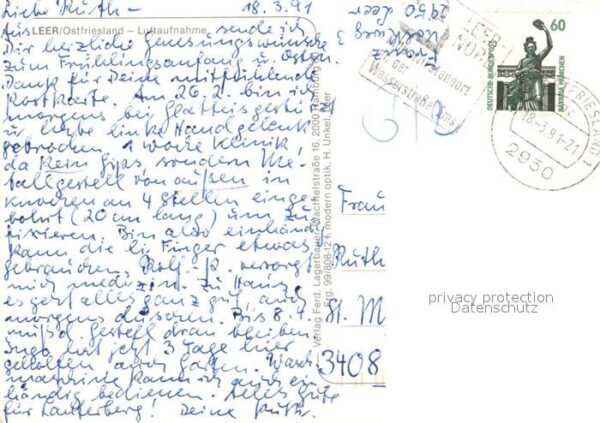 Liebe Ruth – 18.3.91
Aus LEER/Ostfriesland – Luftaufnahme sende ich
Dir herzliche Genesungswünsche
zum Frühlingsanfang u. Ostern.
Dank für Deine mitfühlende
Postkarte. Am 26.2. bin ich
morgens bei Glatteis gestürzt
u. habe linke Handgelenk
gebrochen. 1 Woche Klinik,
da kein Gips sondern Me-
tallgestell von außen in
Knochen an 4 Stellen einge-
bohrt (20 cm lang) um zu
fixieren. Bin also einhändig
kann die li Finger etwas
gebrauchen. Rolf-P. versorgt
mich medizin. Zu Haus
es geht alles ganz gut, auch
morgens duschen. Bis 8.4.
muß d. Gestell dran bleiben
Inge hat jetzt 3 Tage hier
geholfen auch Garten. Wasch-
maschine kann ich auch ein-
händig bedienen. Alles Gute
für Lauterberg! Deine Ruth.
Verlag Ferd. Lagerbauer, Wachtelstraße 16, 2000 Hamburg
Erg. 99/808-12 f. modern optik, H. Unkel, Leer
2950 Leer
LEER
an der
Wasserstraße Ems
60
DEUTSCHE BUNDESPOST
BAVARIA MÜNCHEN
18.-3.91-21
2950
Frau
Ruth
St. M
3408
privacy protection
Datenschutz